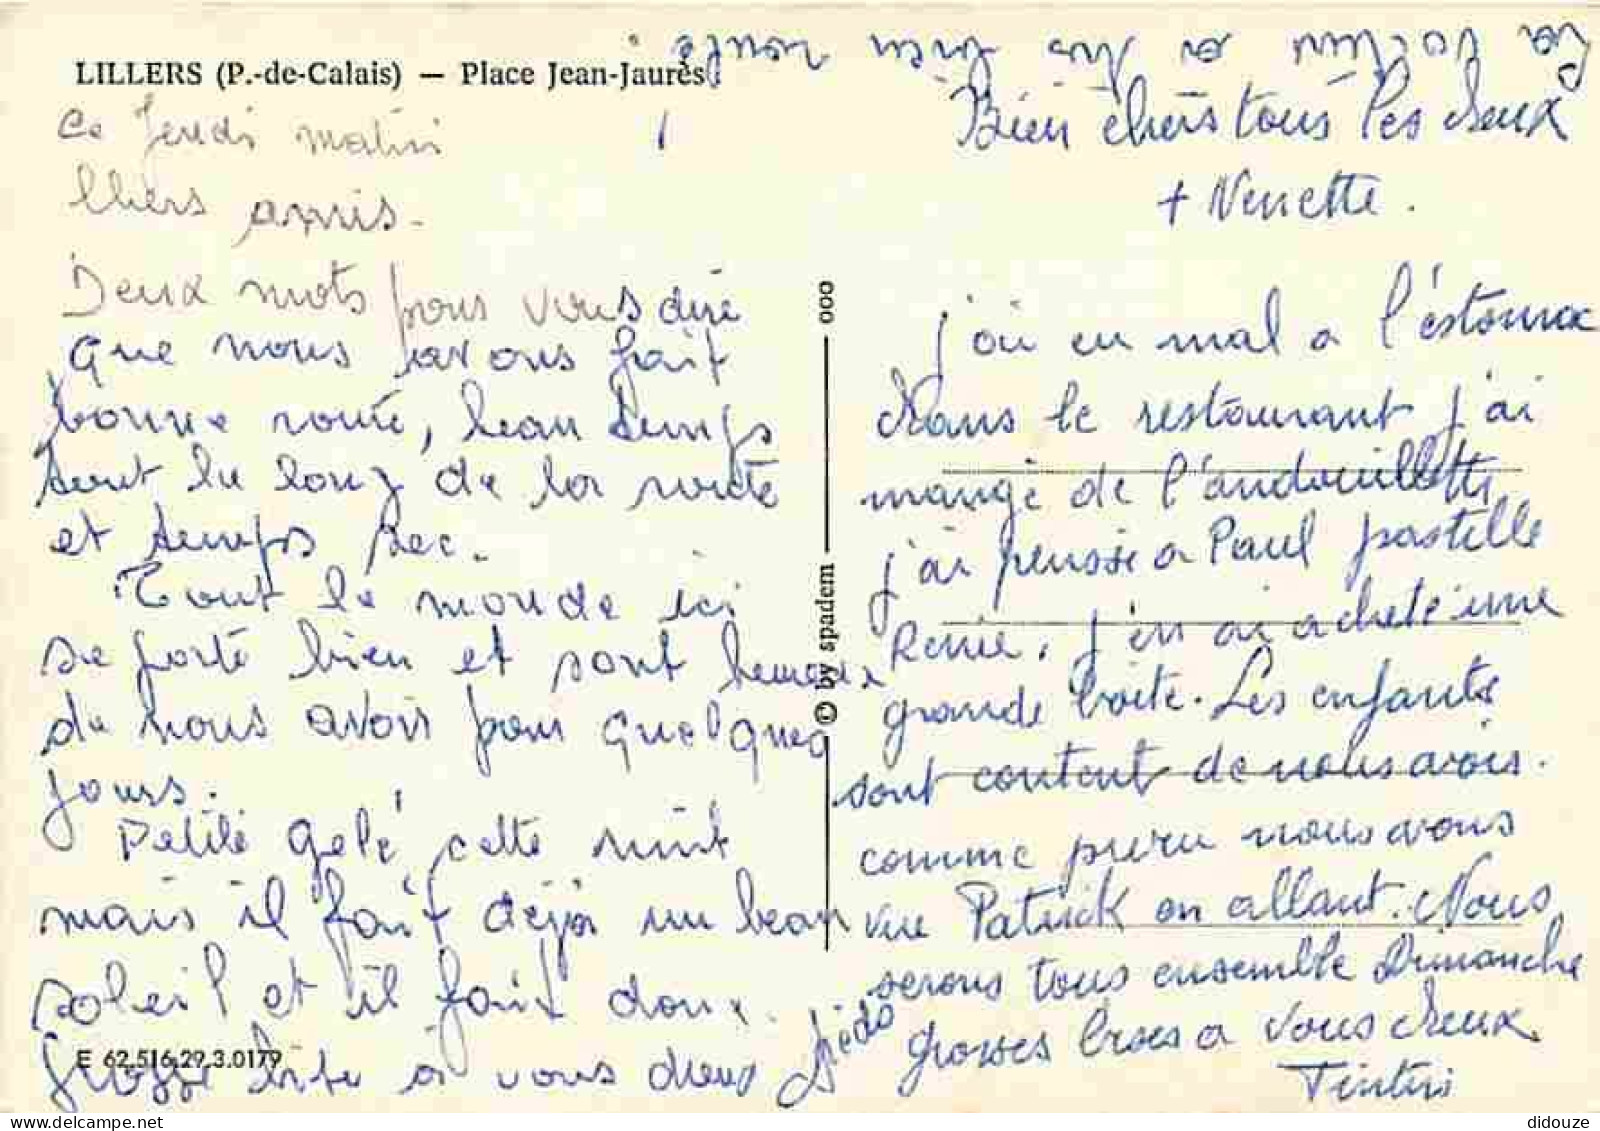 LILLERS (P.-de-Calais) — Place Jean-Jaurès
Ce Jeudi matin
Chers amis.
Deux mots pour vous dire
que nous avons fait
bonne route, beau temps
tout le long de la route
et temps sec.
Tout le monde ici
se porte bien et sont heureux
de nous avoir pour quelques
jours.
Petite gelé cette nuit
mais il fait déjà un beau
soleil et il fait doux.
Grosse bise à vous deux
E 62.516.29.3.0179
© by spadem
ooo
Bien chers tous les deux
+ Nenette.
j'ai eu mal a l'estomac
dans le restaurant j'ai
mangé de l'andouillette
j'ai pensé a Paul pastille
Renie. j'en ai acheté une
grande boite. Les enfants
sont content de nous avoir.
comme prevu nous avons
vue Patrick en allant. Nous
serons tous ensemble Dimanche
grosses bises a vous deux
Tintin
La voiture a rien
didouze